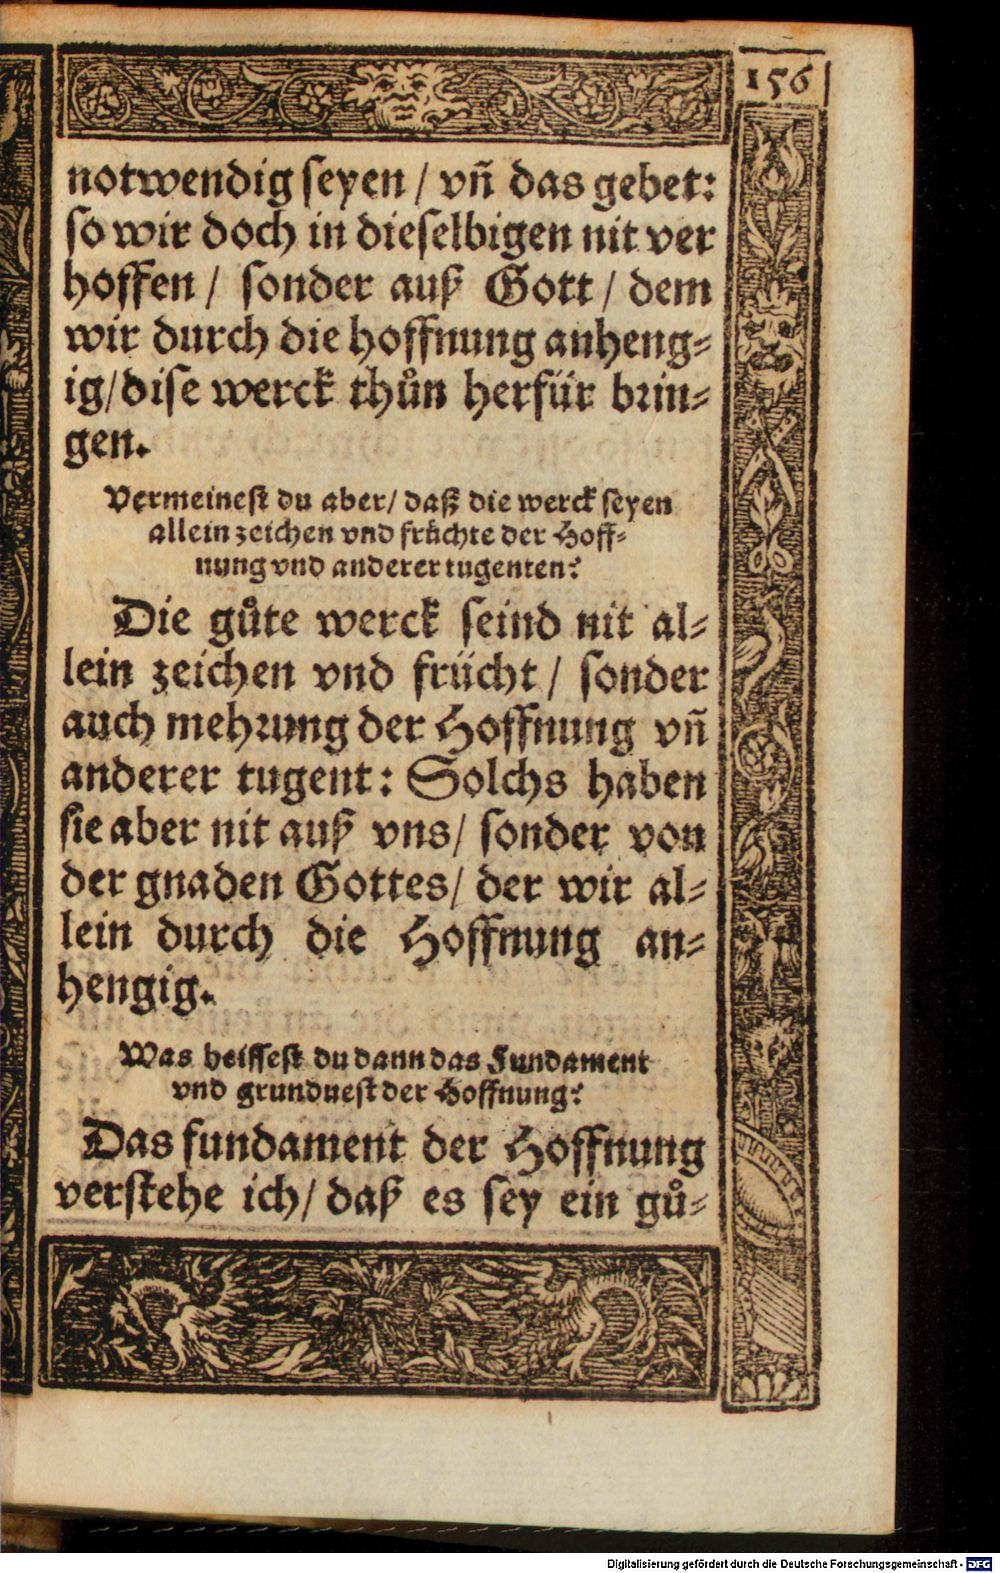 156
notwendig seyen / vñ das gebet:
so wir doch in dieselbigen nit ver
hoffen / sonder auß Gott / dem
wir durch die hoffnung anheng-
ig/dise werck thůn herfür brin-
gen.
Vermeinest du aber/ daß die werck seyen
allein zeichen vnd früchte der Hoff-
nung vnd anderer tugenten?
Die gůte werck seind nit al-
lein zeichen vnd frücht / sonder
auch mehrung der Hoffnung vñ
anderer tugent: Solchs haben
sie aber nit auß vns/ sonder von
der gnaden Gottes/ der wir al-
lein durch die Hoffnung an-
hengig.
Was heissest du dann das Fundament
vnd grunduest der Hoffnung?
Das fundament der Hoffnung
verstehe ich/ daß es sey ein gů-
Digitalisierung gefördert durch die Deutsche Forschungsgemeinschaft - DFG